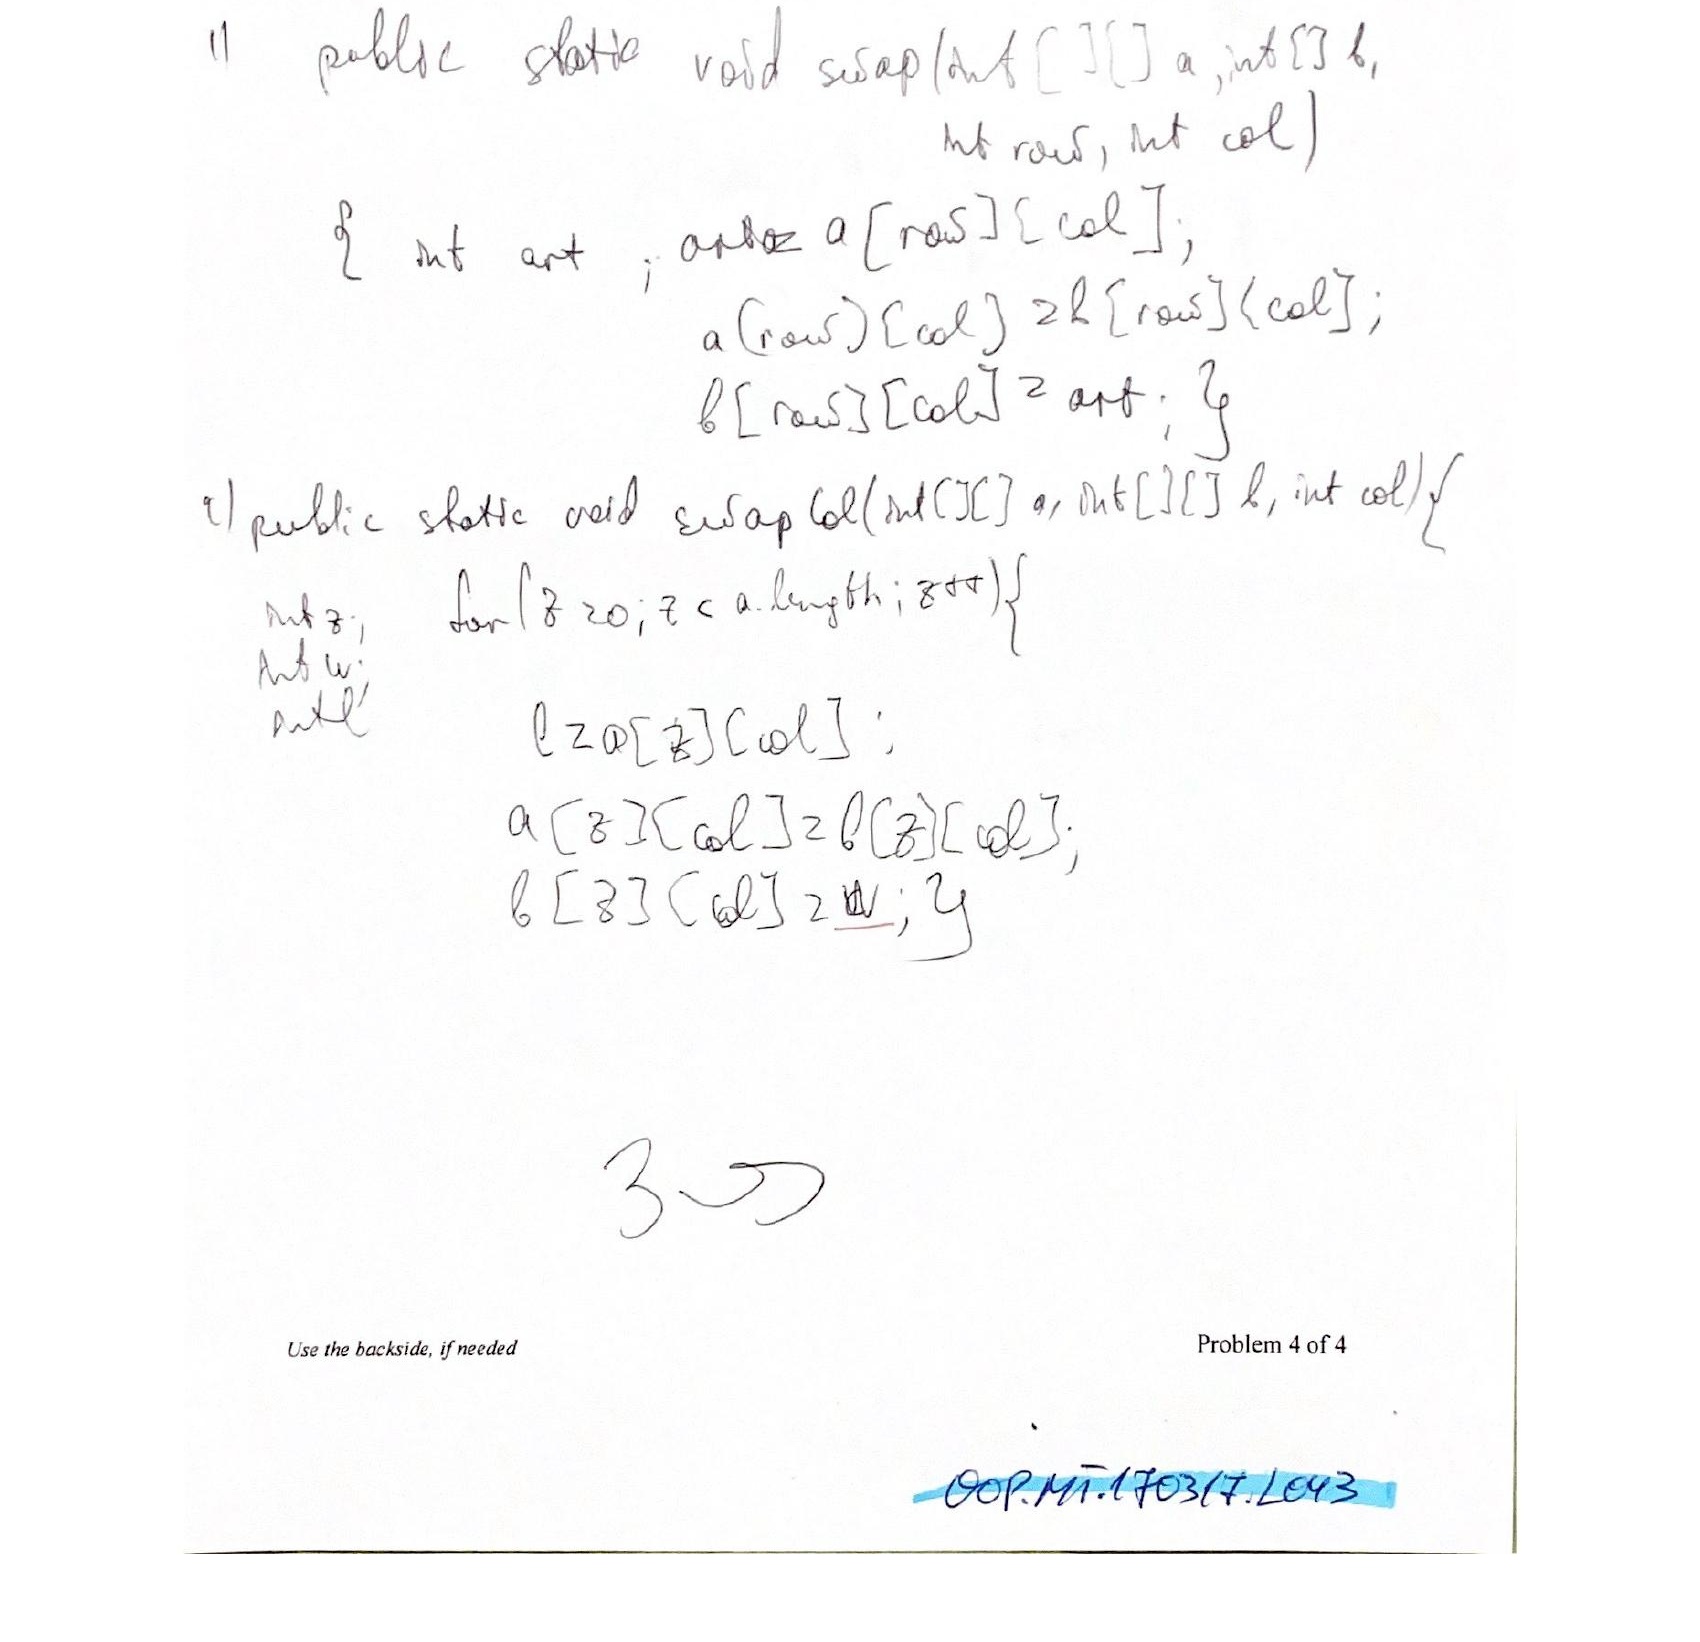 1) public static void swap(int[][] a, int[] b,
int row, int col)
{ int art ; art = a[row][col];
a(row)[col] = b[row][col];
b[row][col] = art; }
2) public static void swapCol(int[][] a, int[][] b, int col){
int z; for(z=0; z < a.length; z++){
int w;
int l
l = a[z][col];
a[z][col] = b[z][col];
b[z][col] = w; }
3
Use the backside, if needed
Problem 4 of 4
OOP.MT.170317.L043